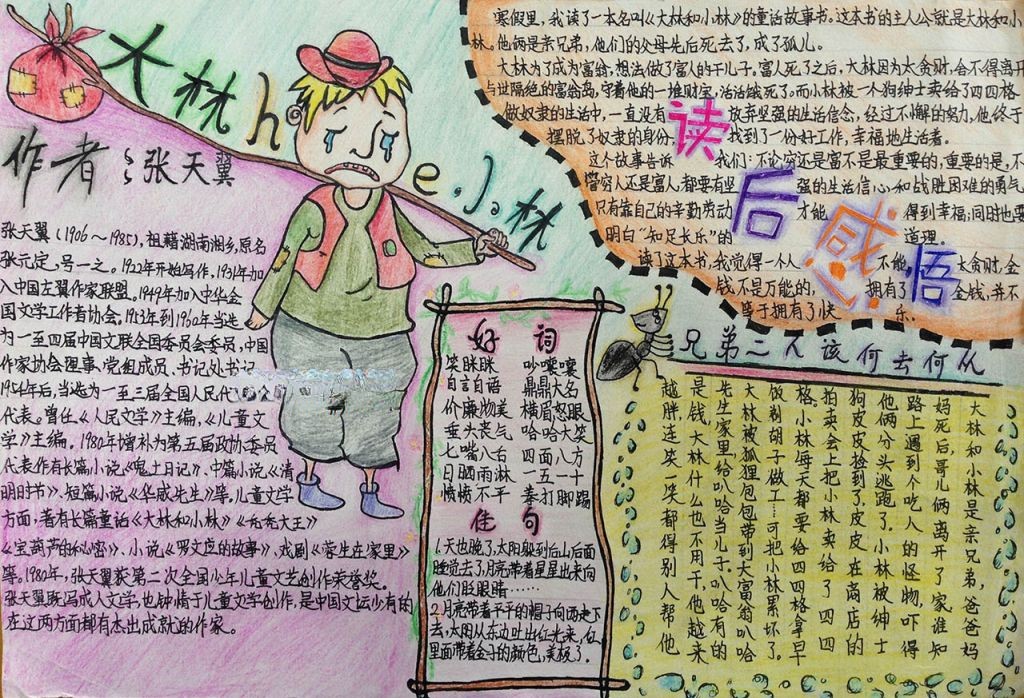 大林he小林
作者：张天翼
张天翼（1906～1985)，祖籍湖南湘乡，原名
张元定，号一之。1922年开始写作，1931年加
入中国左翼作家联盟。1949年加入中华全
国文学工作者协会。1953年到1960年当选
为一至四届中国文联全国委员会委员，中国
作家协会理事、党组成员、书记处书记
1954年后，当选为一至三届全国人民代
代表。曾任《人民文学》主编，《儿童文
学》主编。1980年增补为第五届政协委员
代表作有长篇小说《鬼土日记》、中篇小说《清
明时节》、短篇小说《华威先生》等。儿童文学
方面，著有长篇童话《大林和小林》《秃秃大王》
《宝葫芦的秘密》、小说《罗文应的故事》、戏剧《蓉生在家里》
等。1980年，张天翼获第二次全国少年儿童文艺创作荣誉奖。
张天翼既写成人文学，也钟情于儿童文学创作，是中国文坛少有的
在这两方面都有杰出成就的作家。
读后感悟
寒假里，我读了一本名叫《大林和小林》的童话故事书。这本书的主人公就是大林和小
林。他俩是亲兄弟，他们的父母先后死去了，成了孤儿。
大林为了成为富翁，想法做了富人的干儿子。富人死了之后，大林因为太贪财，舍不得离开
与世隔绝的富翁岛，守着他的一堆财宝，活活饿死了。而小林被一个狗绅士卖给了四四格
做奴隶的生活中，一直没有放弃坚强的生活信念，经过不懈的努力，他终于
摆脱了奴隶的身份，找到了一份好工作，幸福地生活着。
这个故事告诉我们：不论穷还是富不是最重要的，重要的是，不
管穷人还是富人都要有坚强的生活信心和战胜困难的勇气
只有靠自己的辛勤劳动才能得到幸福；同时也要
明白“知足长乐”的道理。
读了这本书，我觉得一个人不能太贪财，金
钱不是万能的，拥有了金钱，并不
等于拥有了快乐。
好词
笑眯眯 吵嚷嚷
自言自语 鼎鼎大名
价廉物美 横眉怒眼
垂头丧气 哈哈大笑
七嘴八舌 四面八方
日晒雨淋 一五一十
愤愤不平 拳打脚踢
佳句
1.天也晚了，太阳躲到后山后面
睡觉去了，月亮带着星星出来向
他们眨眼睛……
2.月亮带着平平的帽子向西走下
去，太阳从东边吐出红光来，红
里面带着金子的颜色，美极了。
兄弟二人该何去何从
大林和小林是亲兄弟，爸爸妈
妈死后，哥儿俩离开了家，谁知
路上遇到个吃人的怪物，吓得
他俩分头逃跑了。小林被绅士
狗皮皮捡到了，皮皮在商店的
拍卖会上把小林卖给了四四
格。小林每天都要给四四格拿早
饭、剃胡子、做工……可把小林累坏了。
大林被狐狸包包带到大富翁叭哈
先生家里给叭哈当儿子。叭哈有的
是钱，大林什么也不用干，他越来
越胖，连笑一笑都得别人帮他